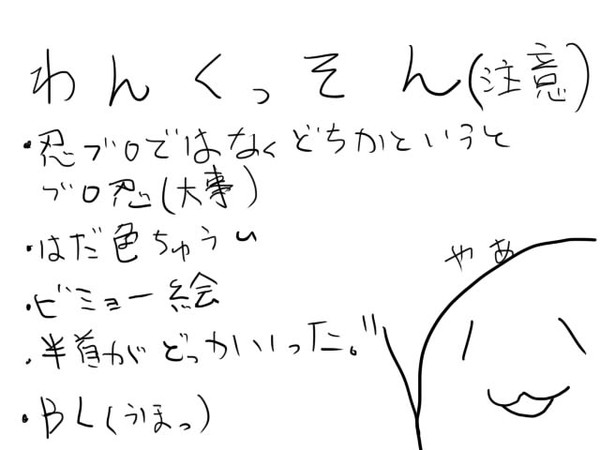 わんくっそん(注意)
・忍ブロではなくどちかというと
ブロ忍(大事)
・はだ色ちゅうい
・ビミョー絵
・半首がどっかいった。
・BL(うほっ)
やあ